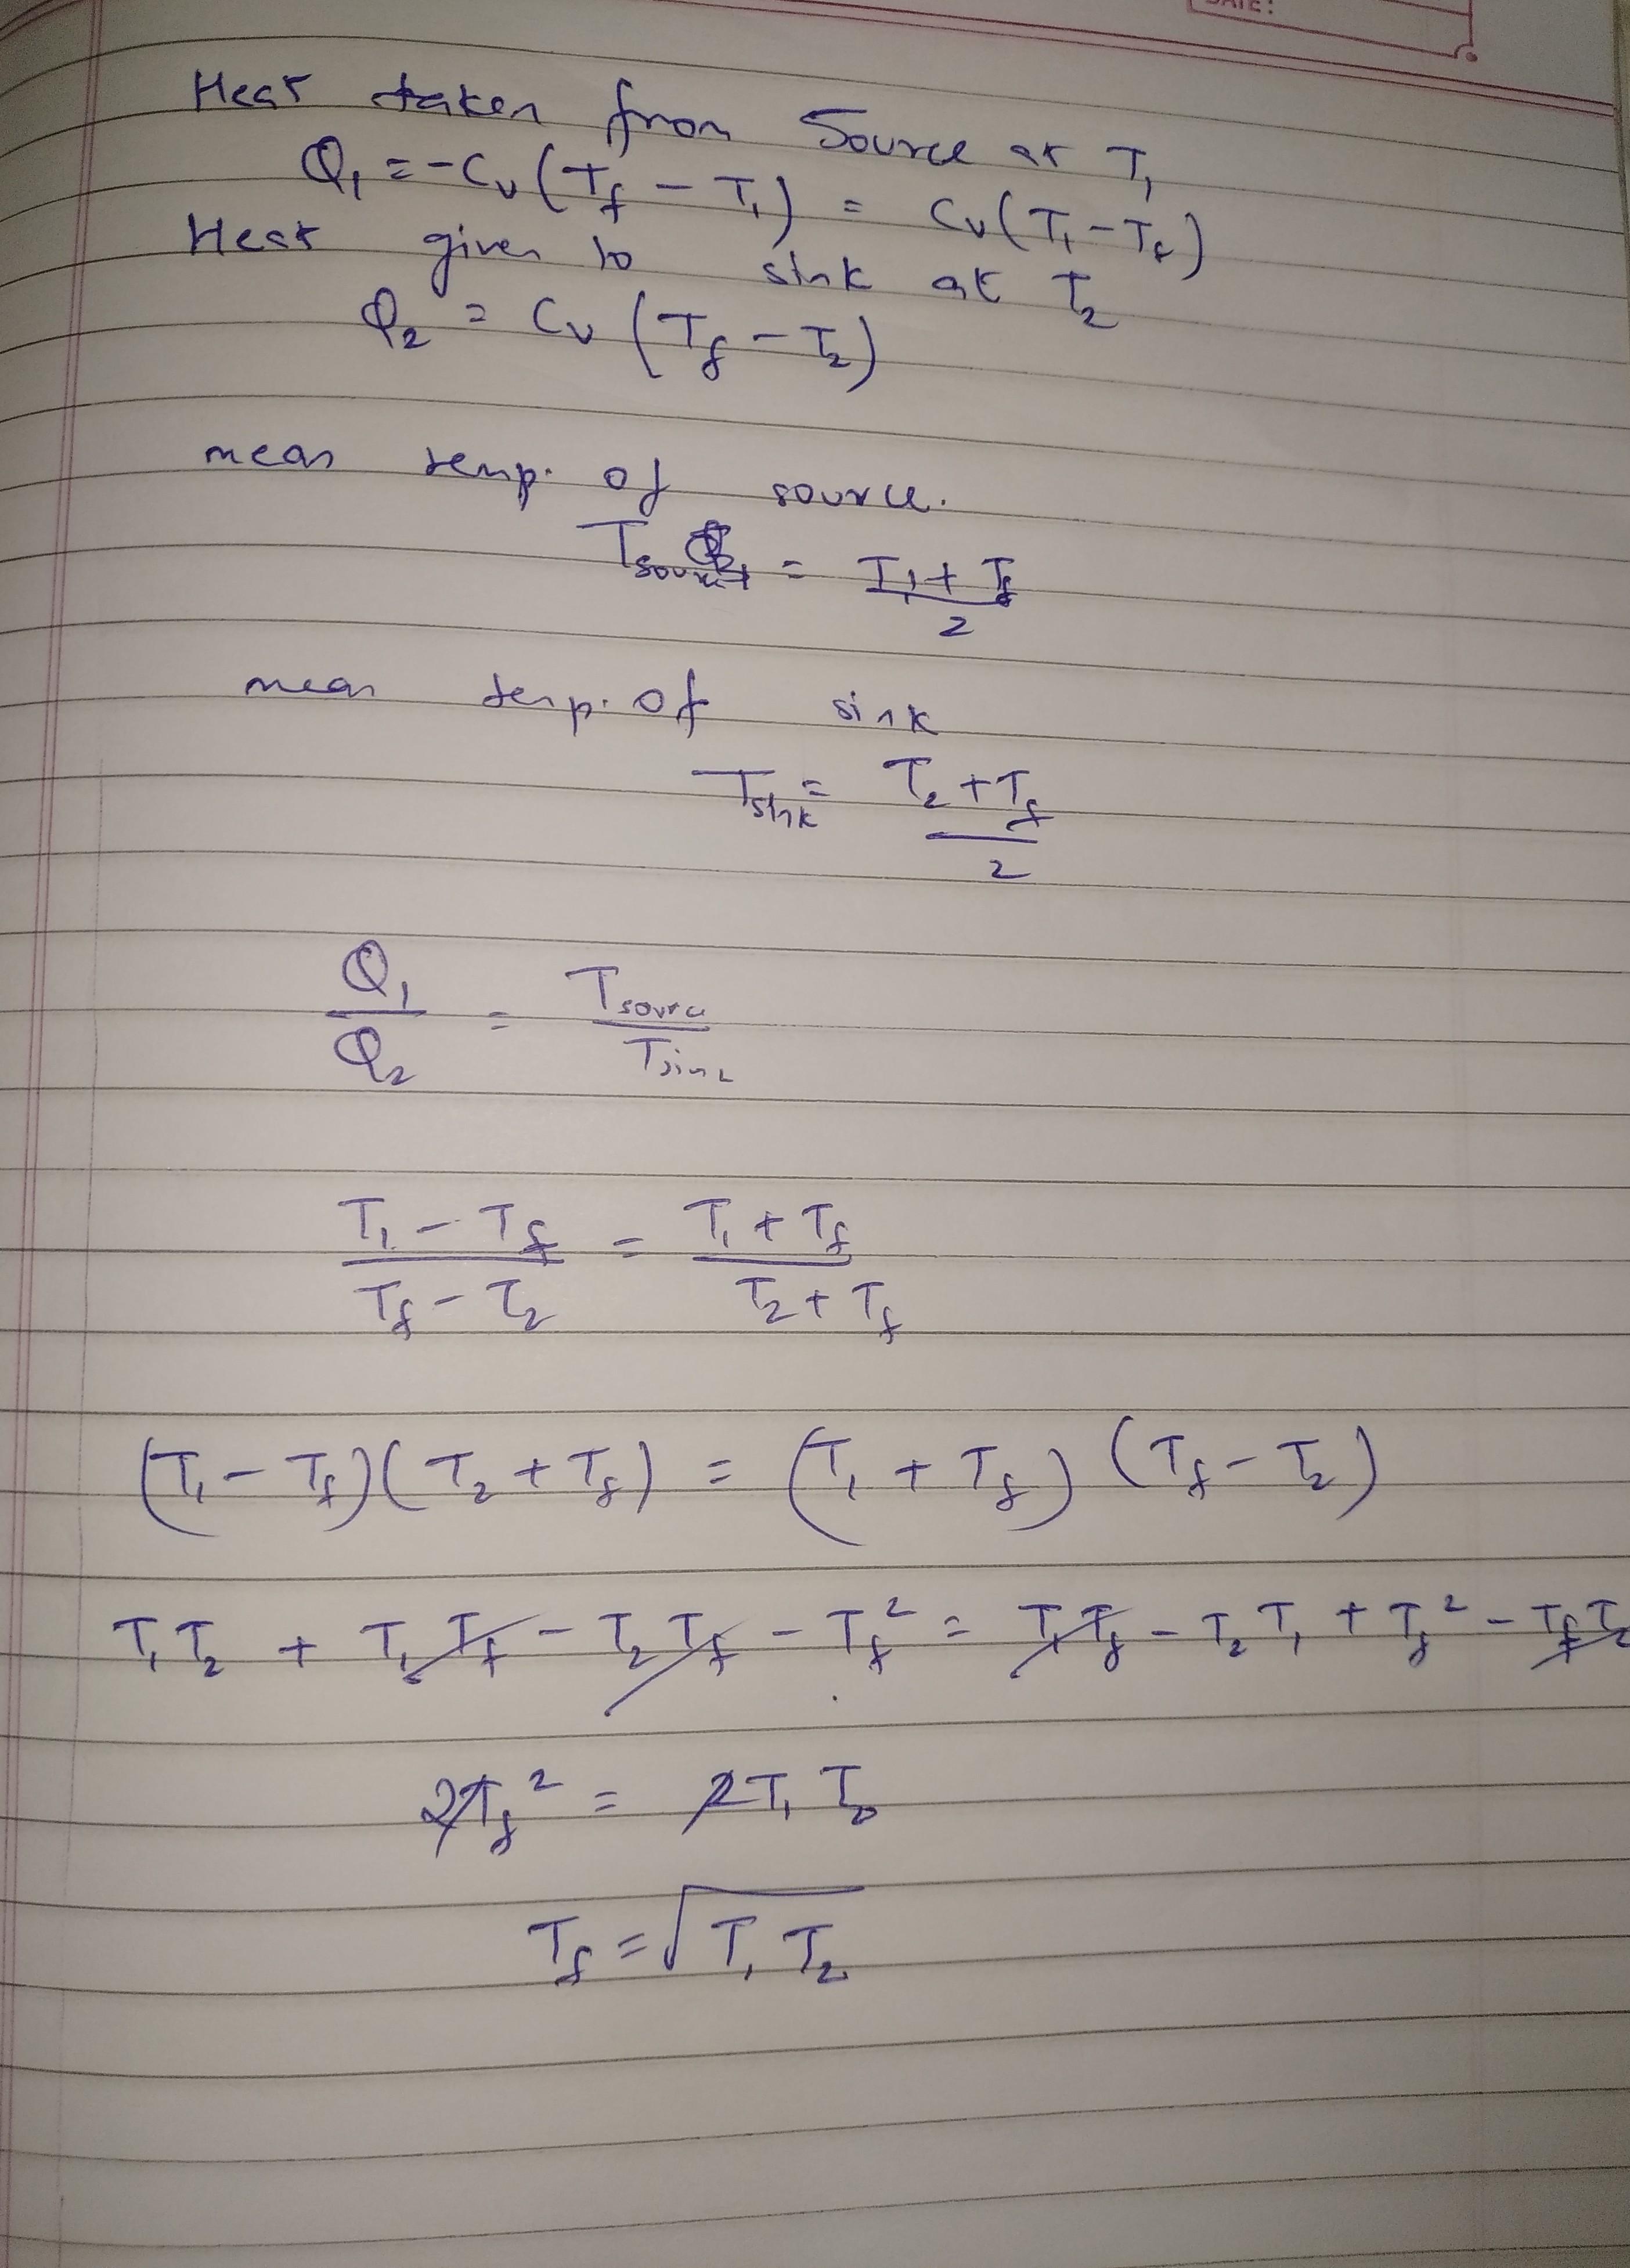 DATE:
Heat taken from Source at T₁
Q₁ = -Cv (Tf - T₁) = Cv (T₁ - Tf)
Heat given to sink at T₂
Q₂ = Cv (Tf - T₂)
mean temp. of source.
Tsource = (T₁ + Tf)/2
mean temp. of sink
Tsink = (T₂ + Tf)/2
Q₁/Q₂ = Tsource/Tsink
(T₁ - Tf)/(Tf - T₂) = (T₁ + Tf)/(T₂ + Tf)
(T₁ - Tf)(T₂ + Tf) = (T₁ + Tf)(Tf - T₂)
T₁T₂ + T₁Tf - T₂Tf - Tf² = T₁Tf - T₂T₁ + Tf² - TfT₂
2Tf² = 2T₁T₂
Tf = √(T₁T₂)